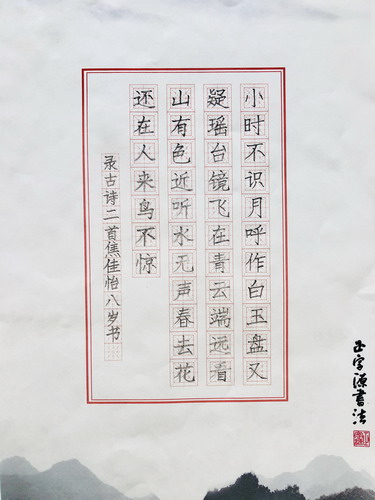 小时不识月呼作白玉盘又
疑瑶台镜飞在青云端远看
山有色近听水无声春去花
还在人来鸟不惊
录古诗二首焦佳怡八岁书
正字源书法